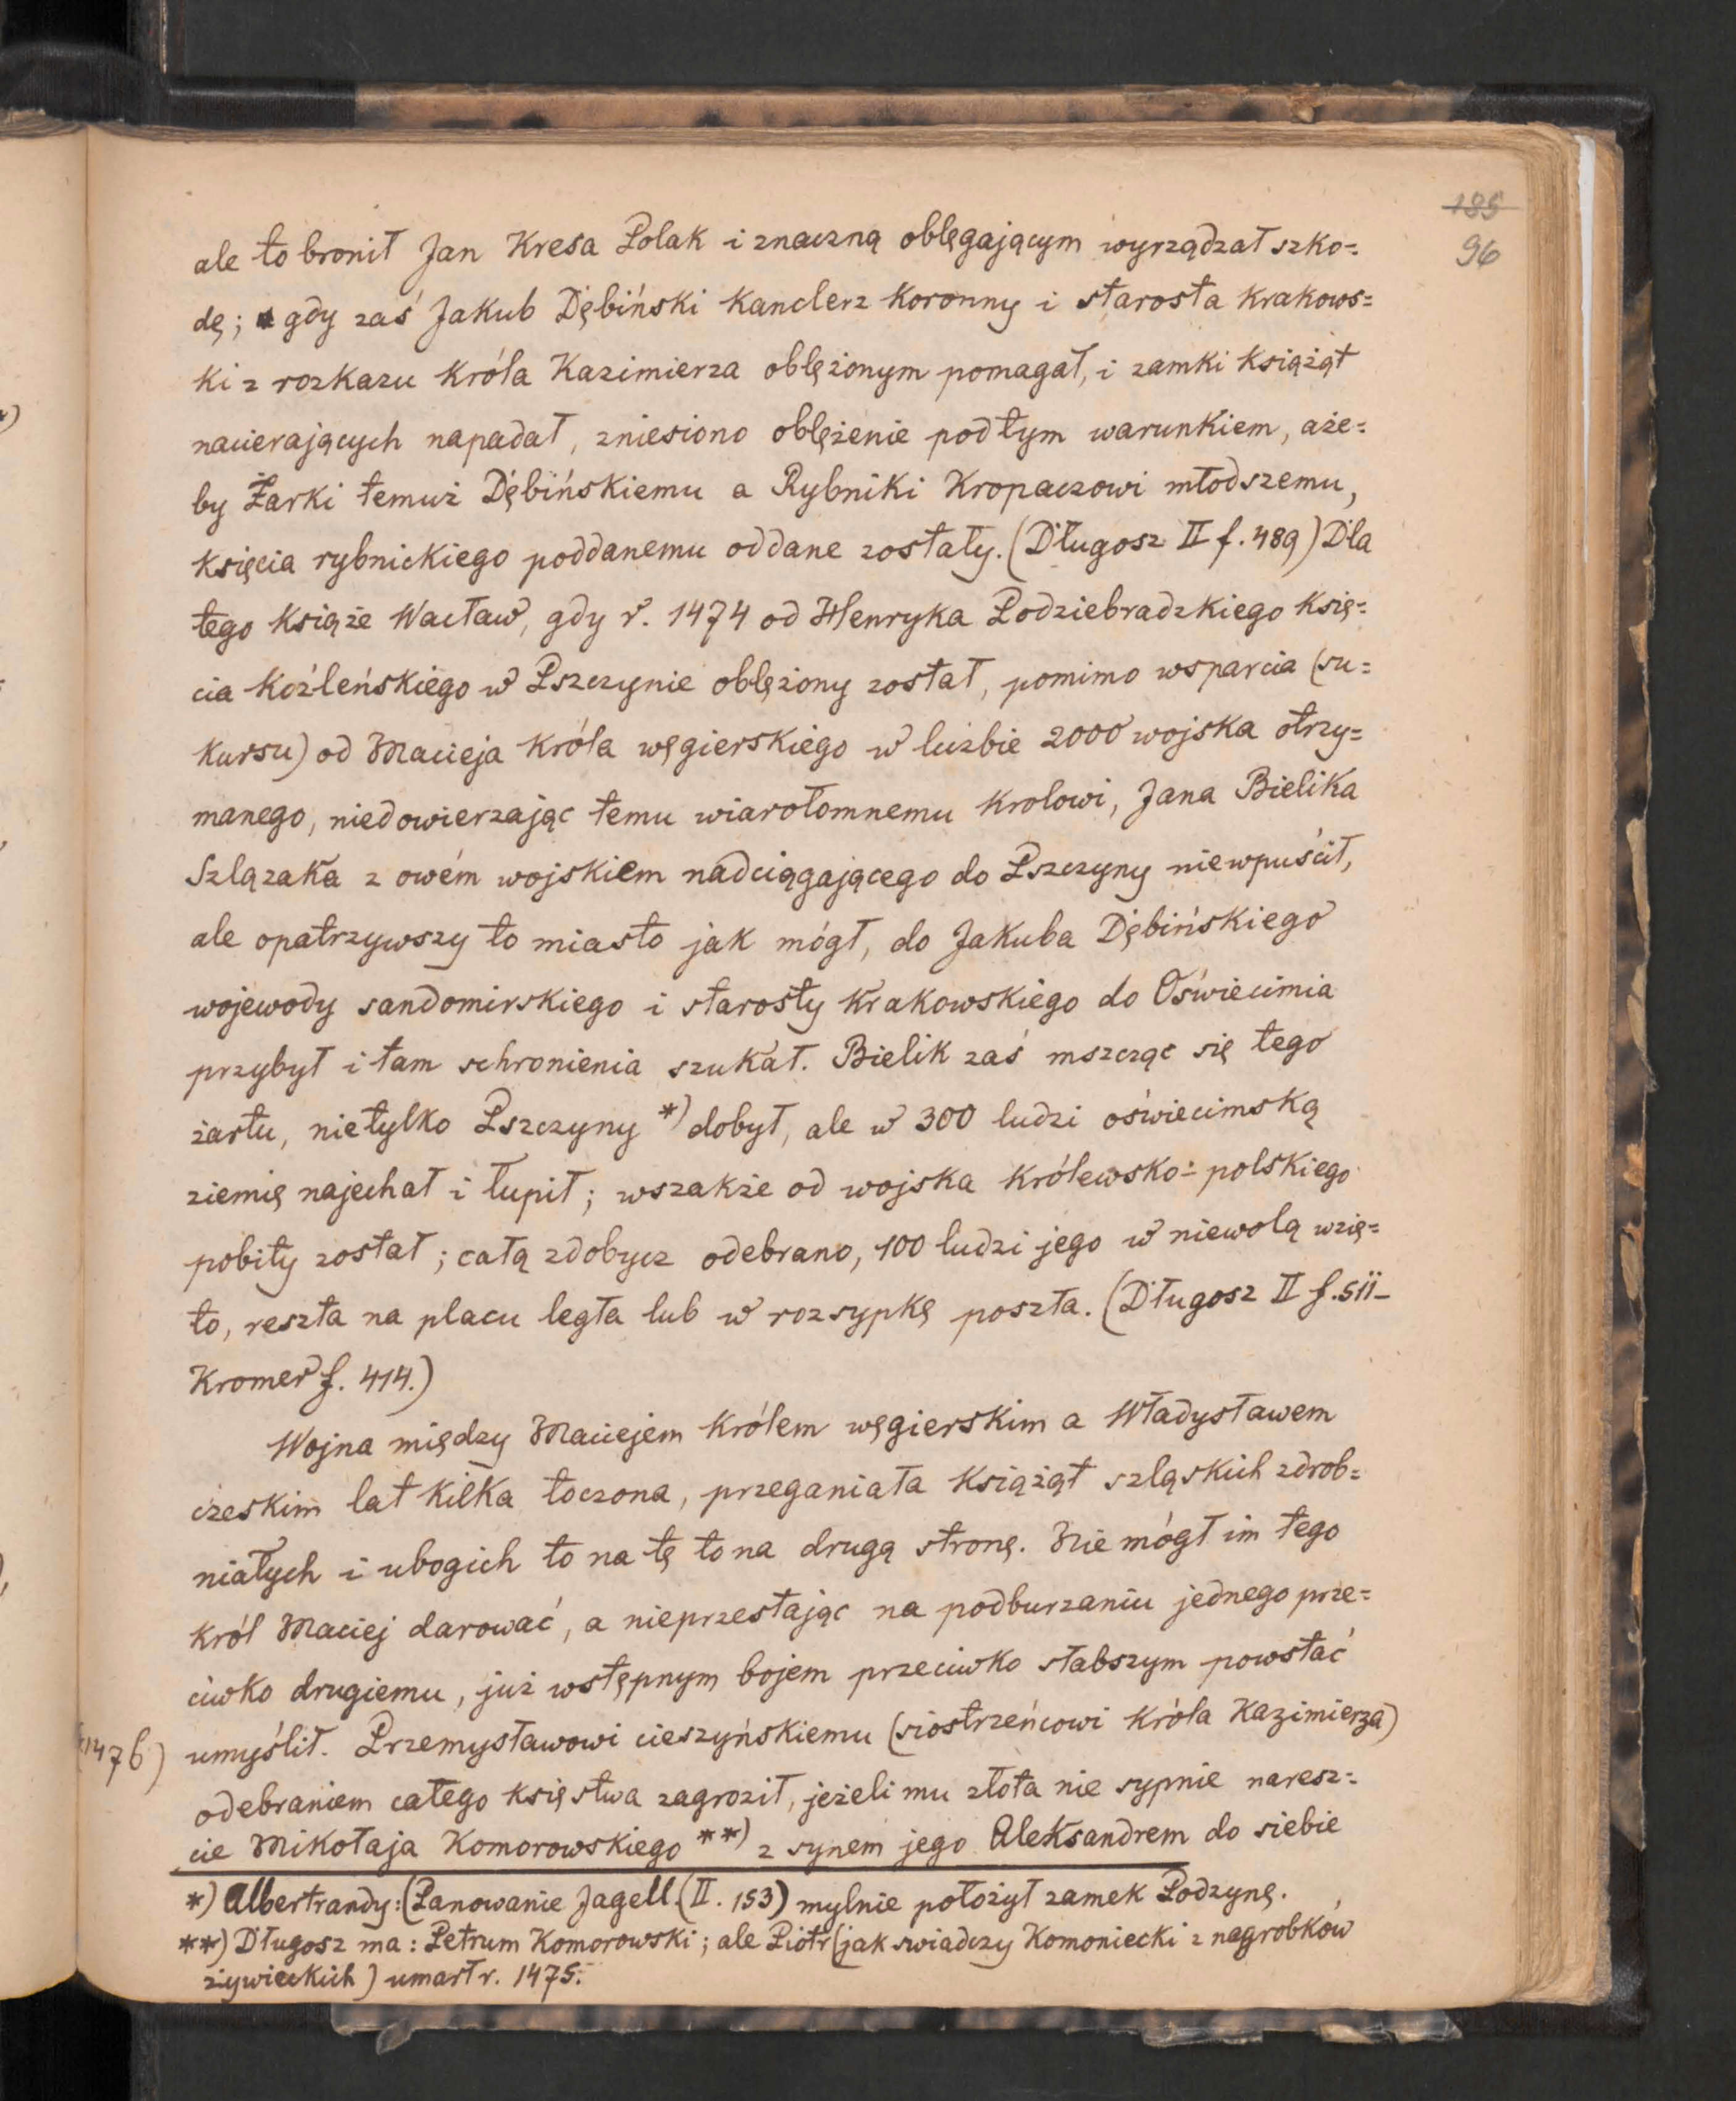 185
96
ale to bronił Jan Kresa Polak i znaczną oblęgającym wyrządzał szko=
dę; gdy zaś Jakub Dębiński kanclerz koronny i starosta krakows=
ki z rozkazu króla Kazimierza oblężonym pomagał, i zamki książąt
nacierających napadał, zniesiono oblężenie pod tym warunkiem, aże=
by Żarki temuż Dębińskiemu a Rybniki Kropaczowi młodszemu,
księcia rybnickiego poddanemu oddane zostały. (Długosz II f. 489) Dla
tego książe Wacław, gdy r. 1474 od Henryka Podziebradzkiego księ=
cia koźleńskiego w Pszczynie oblężony został, pomimo wsparcia (su=
kursu) od Macieja króla węgierskiego w liczbie 2000 wojska otrzy=
manego, niedowierzając temu wiarołomnemu krolowi, Jana Bielika
Szlązaka z owém wojskiem nadciągającego do Pszczyny niewpuścił,
ale opatrzywszy to miasto jak mógł, do Jakuba Dębińskiego
wojewody sandomirskiego i starosty krakowskiego do Oświecimia
przybył i tam schronienia szukał. Bielik zaś mszcząc się tego
żartu, nietylko Pszczyny *) dobył, ale w 300 ludzi oświecimską
ziemię najechał i łupił; wszakże od wojska królewsko=polskiego
pobity został; całą zdobycz odebrano, 100 ludzi jego w niewolą wzię=
to, reszta na placu legła lub w rozsypkę poszła. (Długosz II f. 511_
Kromer f. 414.)
Wojna między Maciejem królem węgierskim a Władysławem
czeskim lat kilka toczona, przeganiała książąt szląskich zdrob=
niałych i ubogich to na tę to na drugą stronę. Nie mógł im tego
król Maciej darować, a nieprzestając na podburzaniu jednego prze=
ciwko drugiemu, już wstępnym bojem przeciwko słabszym powstać
(1476) umyślił. Przemysławowi cieszyńskiemu (siostrzeńcowi króla Kazimierza)
odebraniem całego księstwa zagroził, jeżeli mu złota nie sypnie naresz=
cie Mikołaja Komorowskiego **) z synem jego Aleksandrem do siebie
*) Albertrandy: (Panowanie Jagell. (II. 153) mylnie położył zamek Podzynę.
**) Długosz ma: Petrum Komorowski; ale Piotr (jak swiadczy Komoniecki z nagrobków
żywieckich) umarł r. 1475.